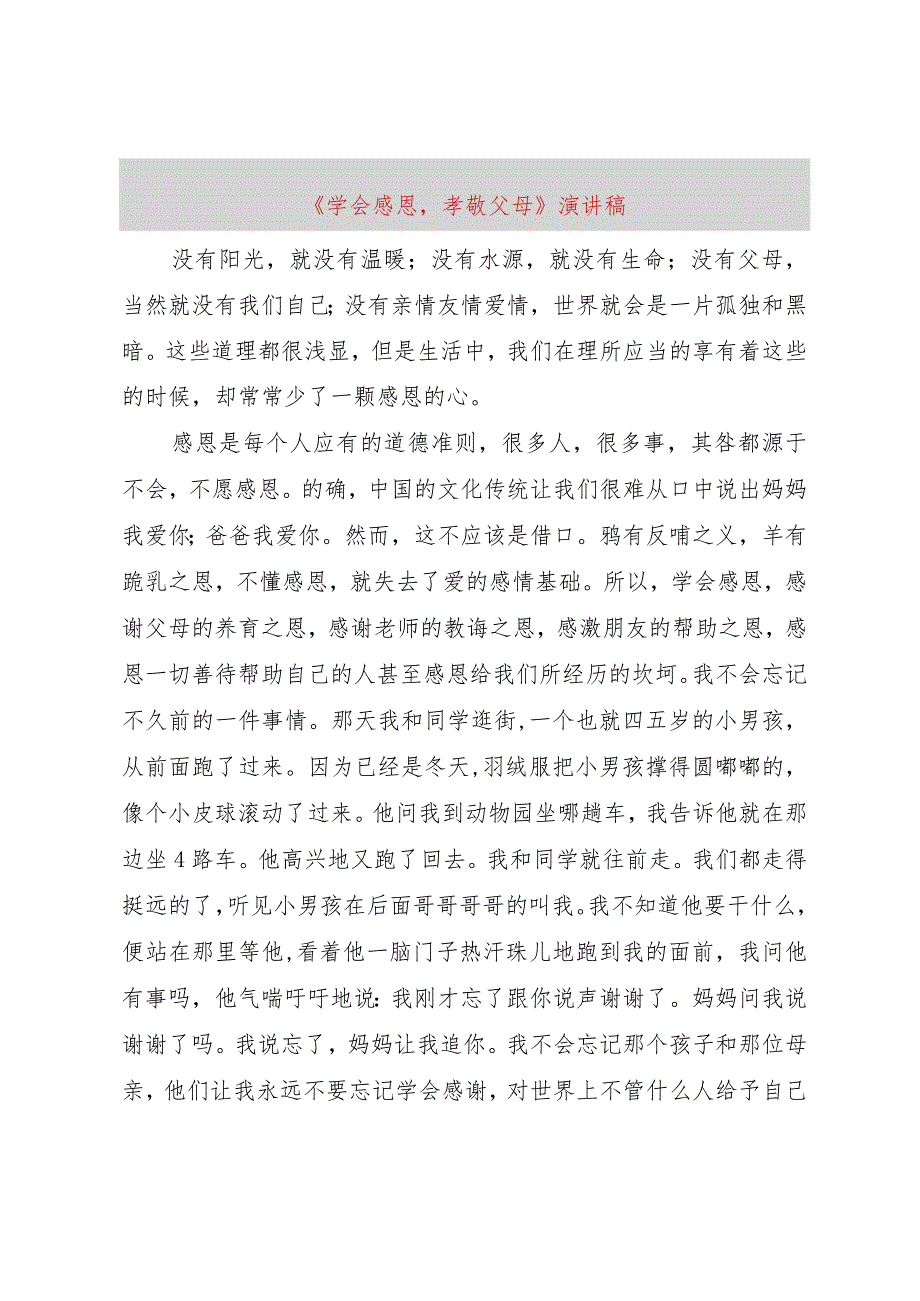 《学会感恩，孝敬父母》演讲稿
没有阳光，就没有温暖；没有水源，就没有生命；没有父母，
当然就没有我们自己；没有亲情友情爱情，世界就会是一片孤独和黑
暗。这些道理都很浅显，但是生活中，我们在理所应当的享有着这些
的时候，却常常少了一颗感恩的心。
感恩是每个人应有的道德准则，很多人，很多事，其咎都源于
不会，不愿感恩。的确，中国的文化传统让我们很难从口中说出妈妈
我爱你；爸爸我爱你。然而，这不应该是借口。鸦有反哺之义，羊有
跪乳之恩，不懂感恩，就失去了爱的感情基础。所以，学会感恩，感
谢父母的养育之恩，感谢老师的教诲之恩，感激朋友的帮助之恩，感
恩一切善待帮助自己的人甚至感恩给我们所经历的坎坷。我不会忘记
不久前的一件事情。那天我和同学逛街，一个也就四五岁的小男孩，
从前面跑了过来。因为已经是冬天，羽绒服把小男孩撑得圆嘟嘟的，
像个小皮球滚动了过来。他问我到动物园坐哪趟车，我告诉他就在那
边坐4路车。他高兴地又跑了回去。我和同学就往前走。我们都走得
挺远的了，听见小男孩在后面哥哥哥哥的叫我。我不知道他要干什么，
便站在那里等他，看着他一脑门子热汗珠儿地跑到我的面前，我问他
有事吗，他气喘吁吁地说：我刚才忘了跟你说声谢谢了。妈妈问我说
谢谢了吗。我说忘了，妈妈让我追你。我不会忘记那个孩子和那位母
亲，他们让我永远不要忘记学会感谢，对世界上不管什么人给予自己